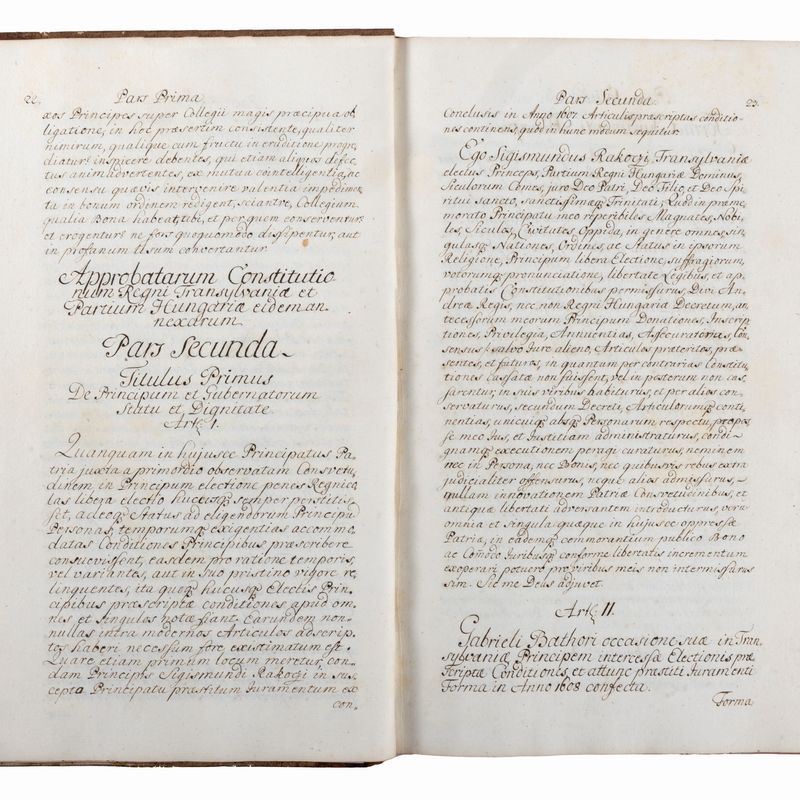 22.
Pars Prima
xos Principes super Collegii magis præcipua ob
ligatione, in hoc præsertim consistente, qualiter
nimirum, qualique cum fructu in eruditione progre
diatur inspicere debentes, qui etiam aliquos defec
tus animadvertentes, ex mutua cointelligentia, ac
consensu quævis intervenire valentia impedimen
ta in bonum ordinem redigent, sciantve, Collegium
qualia Bona habeat, tibi, et per quem conserventur,
et erogentur, ne fors quoquomodo dissipentur, aut
in profanum usum convertantur.
Approbatarum Constitutio
num Regni Transylvaniæ et
Partium Hungariæ eidem an
nexarum
Pars Secunda
Titulus Primus
De Principum et Gubernatorum
Statu et Dignitate
Art. I.
Quamquam in hujusce Principatus Pa
tria juxta a primordio observatam Consvetu
dinem, in Principum electione penes Regnico
las libera electio hucusq semper perstitis
set, adeoq Status ad eligendorum Principum
Personas, temporumq exigentias accommo
datas Conditiones Principibus præscribere
consuevissent, easdem pro ratione temporis,
vel variantes, aut in suo pristino vigore re
linquentes, ita quoq hucusq Electis Prin
cipibus præscriptæ conditiones apud om
nes et singulos notæ fiant. Earundem non
nullas intra modernos Articulos adscrip
tos haberi necessum fore existimatum est.
Quare etiam primum locum meretur, con
dam Principis Sigismundi Rakoczi in sus
cepta Principatu præstitum Juramentum ex
con
Pars Secunda
23.
Conclusis in Anno 1607 Articulis præscriptas conditio
nes continens, quod in hunc modum sequitur.
Ego Sigismundus Rakoczi, Transylvaniæ
electus Princeps, Partium Regni Hungariæ Dominus,
Siculorum Comes, juro Deo Patri, Deo Filio, et Deo Spi
ritui sancto, sanctissimæq Trinitati; Quod in præme
morato Principatu meo reperibiles Magnates, Nobi
les, Siculos, Civitates, Oppida, in genere omnes, sin
gulasq Nationes, Ordines, ac Status in ipsorum
Religione, Principum libera Electione, suffragiorum,
votorumq pronunciatione, libertate Legibus, et ap
probatis Constitutionibus permissurus, Divi An
dreæ Regis, nec non Regni Hungariæ Decretum, an
tecessorum meorum Principum Donationes, Inscrip
tiones, Privilegia, Annuentias, Assecuratorias, Con
sensus, salvo Jure alieno, Articulos præteritos, præ
sentes, et futuros, in quantum per contrarias Constitu
tiones Cassatæ non fuissent, vel in posterum non cas
sarentur, in suis viribus habiturus, et per alios con
servaturus, secundum Decreti, Articulorumq conti
nentias, unicuiq absq Personarum respectu, propos
se meo Jus, et Justitiam administraturus, condi
gnamq executionem peragi curaturus, neminem
nec in Persona, nec Bonis, nec quibusvis rebus extra
judicialiter offensurus, neque alios admissurus,
nullam innovationem Patriæ Consvetudinibus, et
antiquæ libertati adversantem introducturus, verum
omnia et singula quæque in hujusce oppressæ
Patriæ, in eademq commorantium publico Bono
ac Comodo Juribusq conforme libertatis incrementum
exoperari potuero pro viribus meis non intermissurus
sim. Sic me Deus adjuvet.
Art. II.
Gabrieli Bathori occasione suæ in Tran
sylvaniæ Principem intercessæ Electionis præ
scriptæ Conditiones, et attunc præstiti Juramenti
Forma in Anno 1608 confecta.
Forma